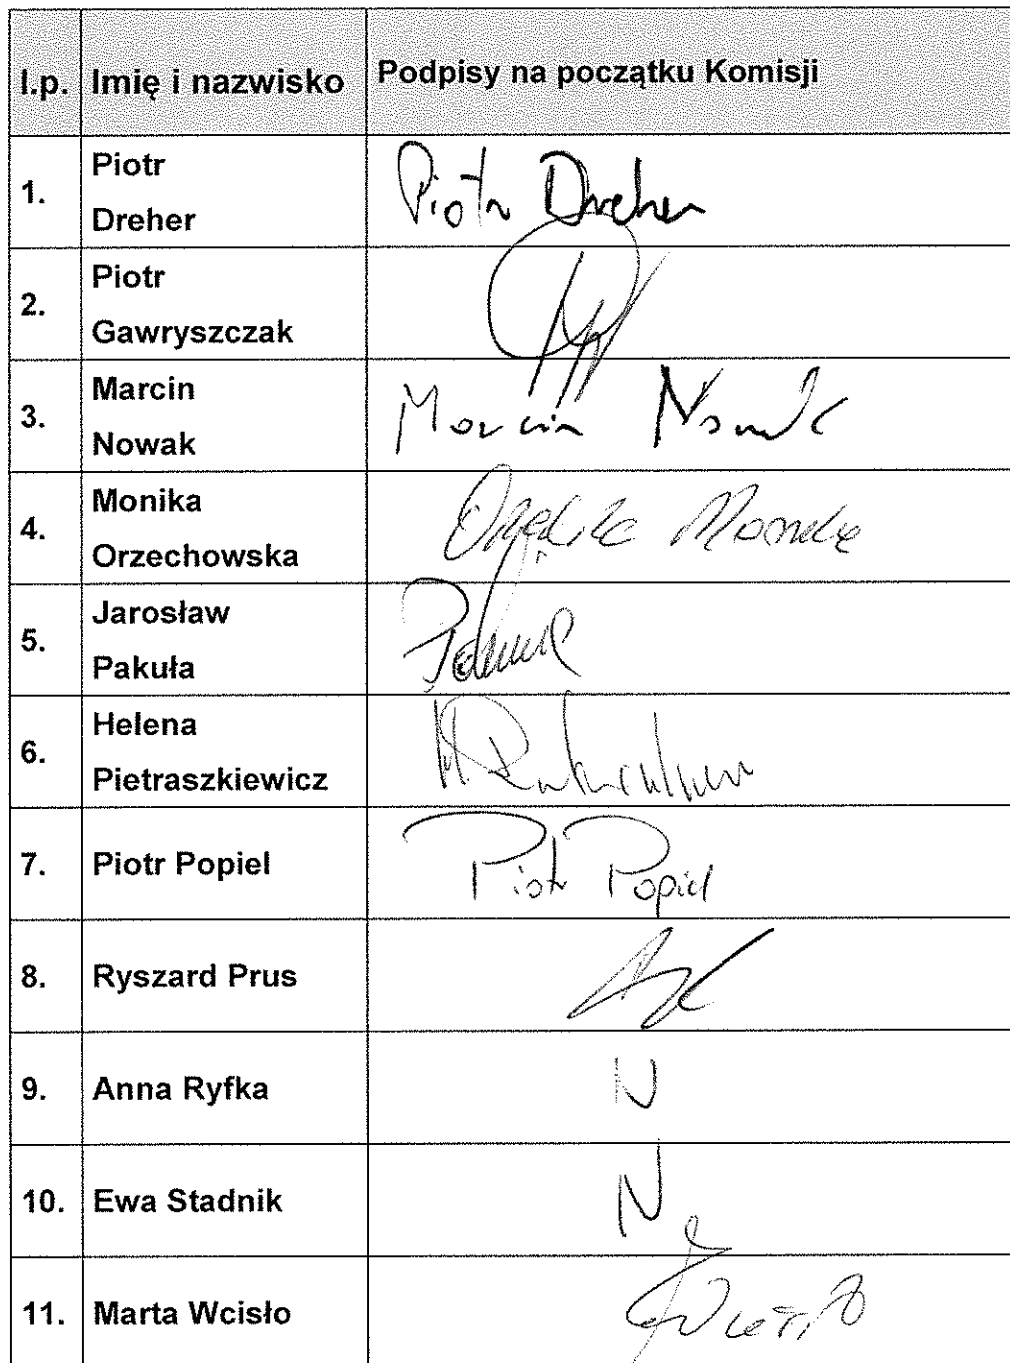 l.p. Imię i nazwisko Podpisy na początku Komisji
1. Piotr
Dreher
Piotr Dreher
2. Piotr
Gawryszczak
3. Marcin
Nowak
Marcin Nowak
4. Monika
Orzechowska
5. Jarosław
Pakuła
6. Helena
Pietraszkiewicz
7. Piotr Popiel
Piotr Popiel
8. Ryszard Prus
9. Anna Ryfka
N
10. Ewa Stadnik
N
11. Marta Wcisło